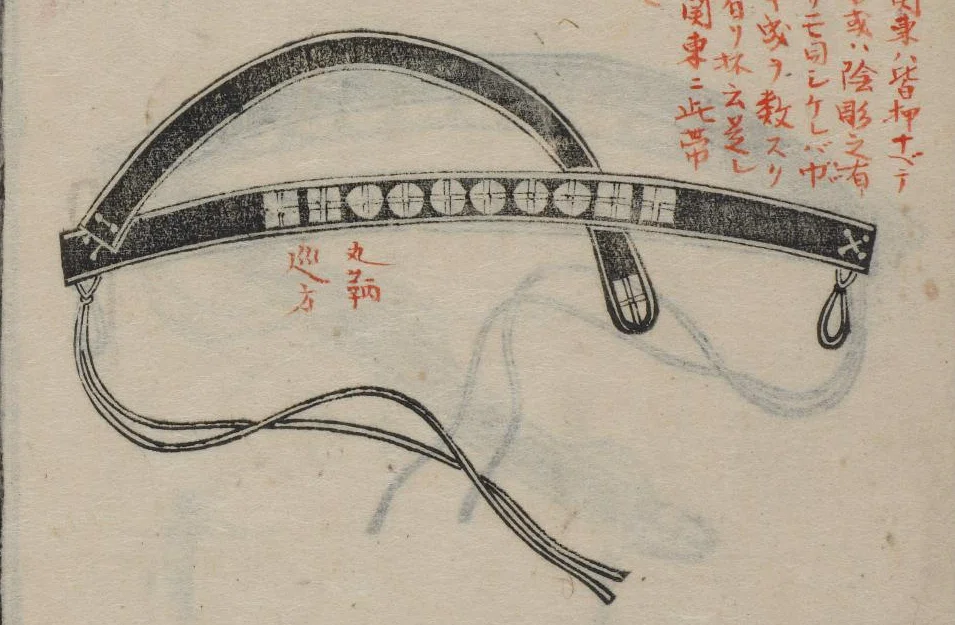 関東ハ皆押ナベテ
或ハ陰彫之有
リモ同シケレバ
或ヲ数スリ
有リ抔云是レ
関東ニ此帯
丸鞆
巡方